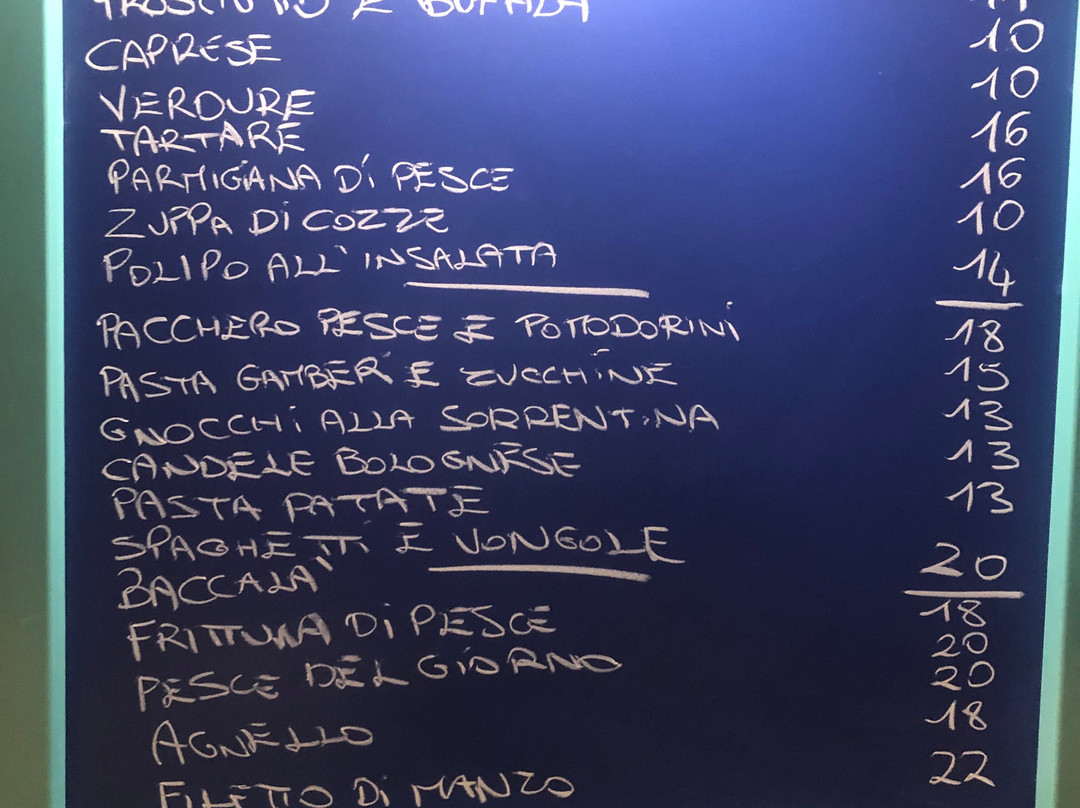 E BUFALA
CAPRESE 10
VERDURE 10
TARTARE 16
PARMIGIANA Di PESCE 16
ZUPPA Di COZZE 10
POLIPO ALL'INSALATA 14
PACCHERO PESCE E POMODORINI 18
PASTA GAMBERI E ZUCCHINE 15
GNOCCHi ALLA SORRENTINA 13
CANDELE BOLOGNESE 13
PASTA PATATE 13
SPAGHETTi E VONGOLE 20
BACCALA' 18
FRITTURA Di PESCE 20
PESCE DEL GiORNO 20
AGNELLO 18
FILETTO Di MANZO 22